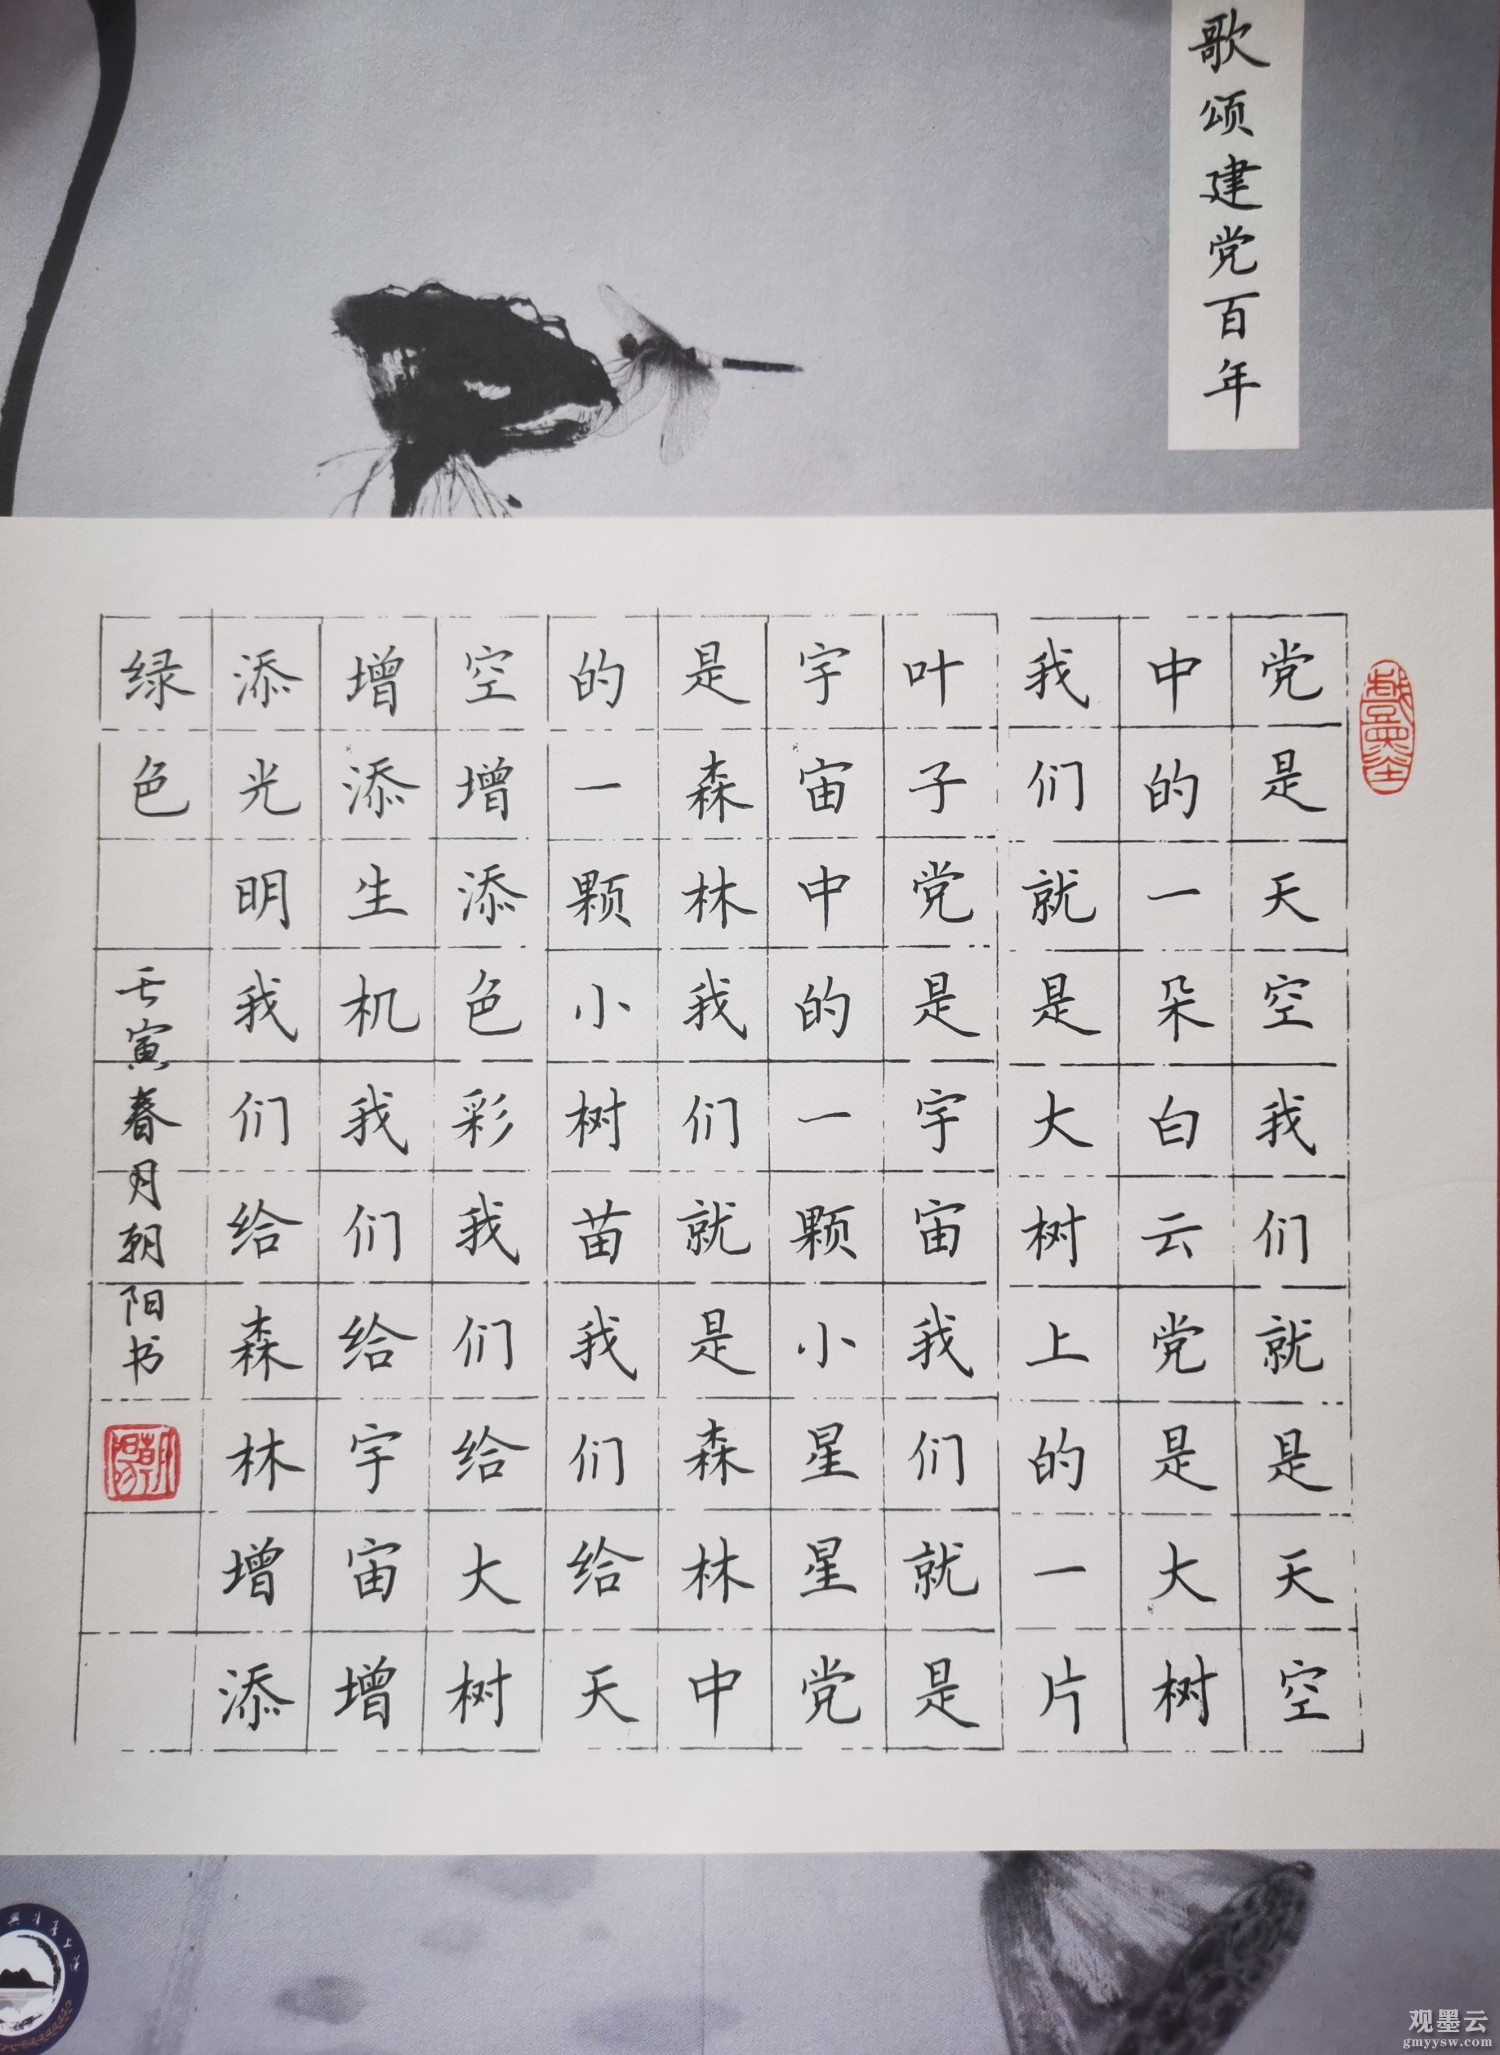 歌颂建党百年
党是天空我们就是天空
中的一朵白云党是大树
我们就是大树上的一片
叶子党是宇宙我们就是
宇宙中的一颗小星星党
是森林我们就是森林中
的一颗小树苗我们给天
空增添色彩我们给大树
增添生机我们给宇宙增
添光明我们给森林增添
绿色
壬寅春月朝阳书
朝阳
观墨云
gmyysw.com